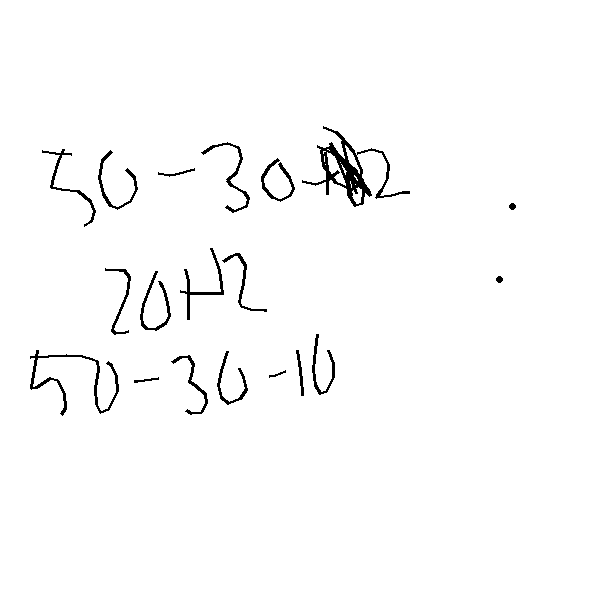 50-30-2
20+12
50-30-10